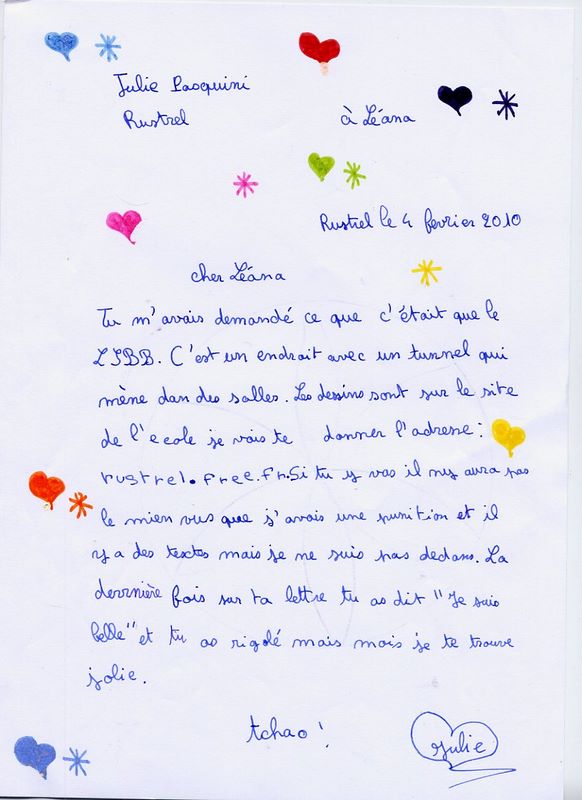 Julie Pasquini
Rustrel
à Léana
Rustrel le 4 fevrier 2010
cher Léana
Tu m'avais demandé ce que c'était que le
LSBB. C'est un endroit avec un tunnel qui
mène dan des salles. Les dessins sont sur le site
de l'ecole je vais te donner l'adresse :
rustrel.free.fr. Si tu y vas il n'y aura pas
le mien vus que j'avais une punition et il
y a des textes mais je ne suis pas dedans. La
derrnière fois sur ta lettre tu as dit "Je suis
belle" et tu as rigolé mais mois je te trouve
jolie.
tchao !
Julie